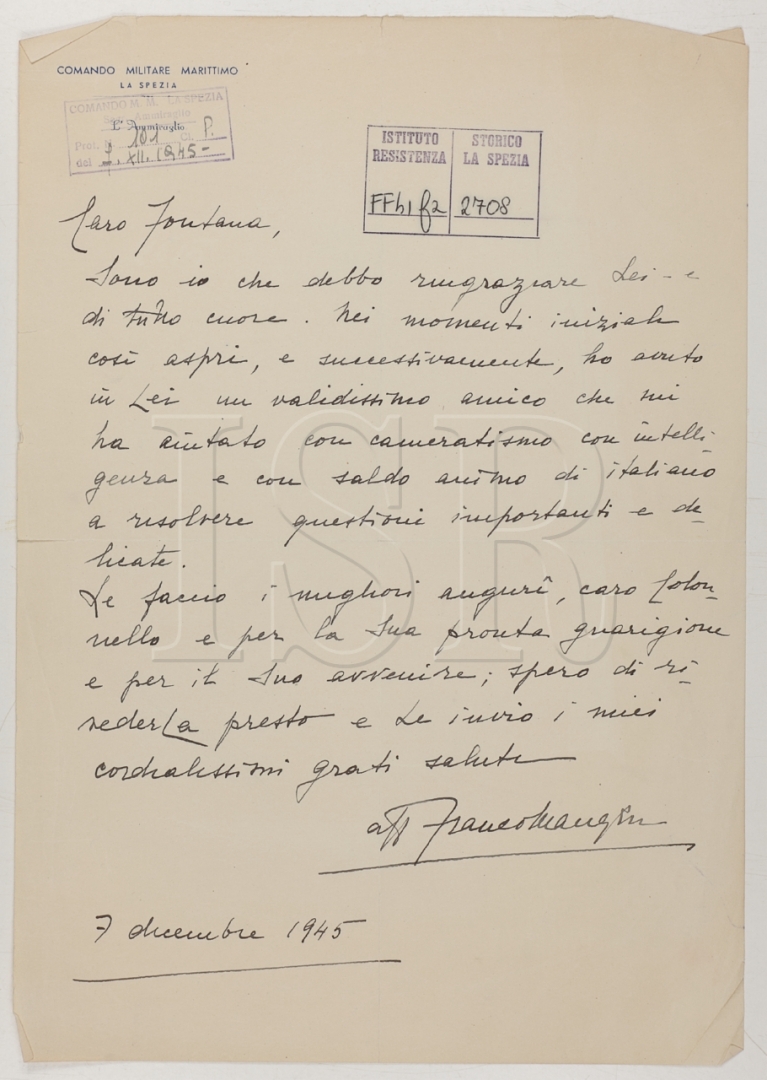 COMANDO MILITARE MARITTIMO
LA SPEZIA
COMANDO M. M. LA SPEZIA
Ammiraglio
L'Ammiraglio
Prot. 101 Cl. P.
del 7. XII. 1945-
ISTITUTO STORICO
RESISTENZA LA SPEZIA
FFb1 f2 2708
Caro Fontana,
Sono io che debbo ringraziare Lei - e
di tutto cuore. Nei momenti iniziali
così aspri, e successivamente, ho avuto
in Lei un validissimo amico che mi
ha aiutato con cameratismo con intelli-
genza e con saldo animo di italiano
a risolvere questioni importanti e de-
licate.
Le faccio i migliori auguri, caro Colon-
nello e per la Sua pronta guarigione
e per il Suo avvenire; spero di ri-
vederLa presto e Le invio i miei
cordialissimi grati saluti
aff Franco Maugeri
7 dicembre 1945
ISR